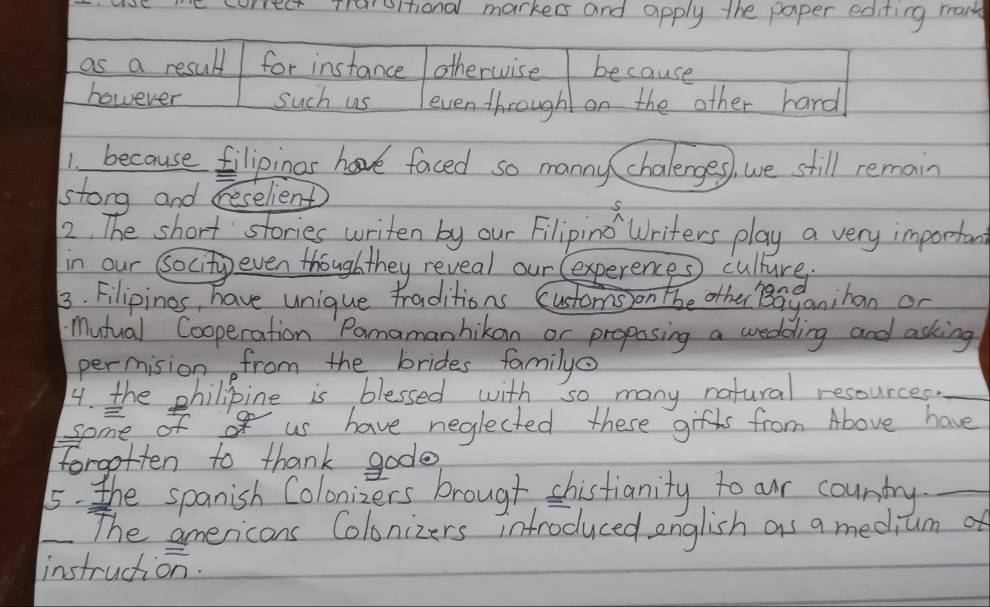 1. use the correct transitional markers and apply the paper editing mark
as a result for instance otherwise because
however such us even through on the other hand
1. because filipinos have faced so manny chalenges, we still remain
stong and reselient
2. The short stories writen by our Filipino s Writers play a very important
in our socity even though they reveal our experences culture.
3. Filipinos, have unique traditions customs on the other hand Bayanihan or
Mutual Cooperation Pamamanhikan or proposing a wedding and asking
permision from the brides family
4. the philipine is blessed with so many natural resources.
some of of us have neglected these gifts from Above have
forgotten to thank god
5. the spanish Colonizers brougt chistianity to our country.
The americans Colonizers introduced english as a medium of
instruction.